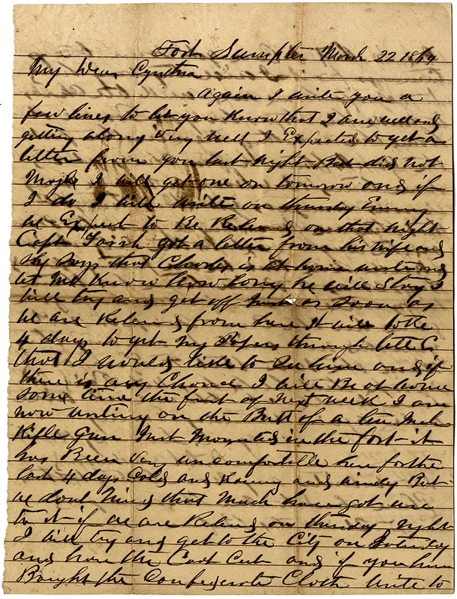 Fort Sumpter March 22 1864
My Dear Cynthia
Again I write you a
few lines to let you Know that I am well and
getting along very well I Expected to get a
letter from you last night But did not
Maybe I will get one on tomorrow and if
I do I will write on thursday Evening
we Expect to Be Relieved on that night
Capt got a letter from his wife and
She Says that Charles is at home write and
let me Know how long he will Stay I
will try and get off just as Soon as
we are Relieved from here it will take
4 days to get my papers through
that I would like to See him and if
there is any Chance I will Be at home
Some time the first of Next week I am
now writing on the Butt of a ten inch
Rifle Gun just Mounted in the fort it
has Been very uncomfortable here for the
last 4 days Cold and Rainy and windy But
we dont Mind that Much have got use
to it if we are Relieved on thursday night
I will try and get to the City on Saturday
and have the Coat Cut and if you have
Bought the Confederate Cloth write to